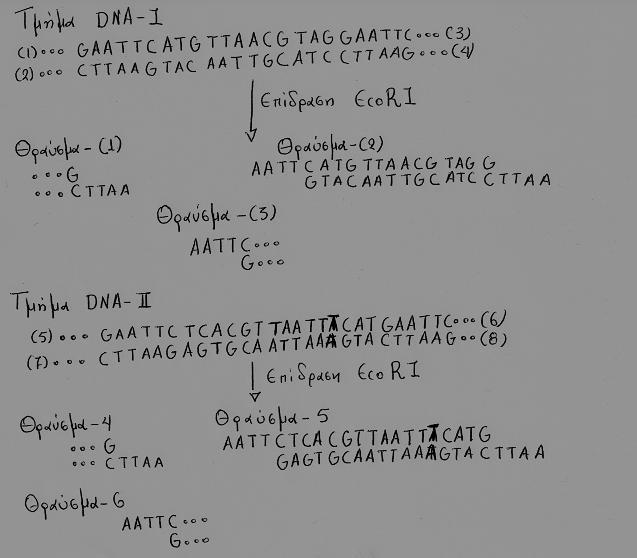 Τμήμα DNA-I
(1)ₒₒₒ GAATTCATGTTAACGTAGGAATTCₒₒₒ(3)
(2)ₒₒₒ CTTAAGTAC AATTGCATCCTTAAGₒₒₒ(4)
Επίδραση EcoRI
Θραύσμα-(1)
ₒₒₒG
ₒₒₒCTTAA
Θραύσμα-(2)
AATTCATGTTAACG TAG G
GTACAATTGCATCCTTAA
Θραύσμα-(3)
AATTCₒₒₒ
Gₒₒₒ
Τμήμα DNA-II
(5)ₒₒₒ GAATTCTCACGTTAATTTCATGAATTCₒₒₒ(6)
(7)ₒₒₒ CTTAAGAGTGCAATTAAAGTACTTAAGₒₒ(8)
Επίδραση EcoRI
Θραύσμα-4
ₒₒₒ G
ₒₒₒ CTTAA
Θραύσμα-5
AATTCTCACGTTAATTTCATG
GAGTGCAATTAAAGTACTTAA
Θραύσμα-6
AATTCₒₒₒ
Gₒₒₒ